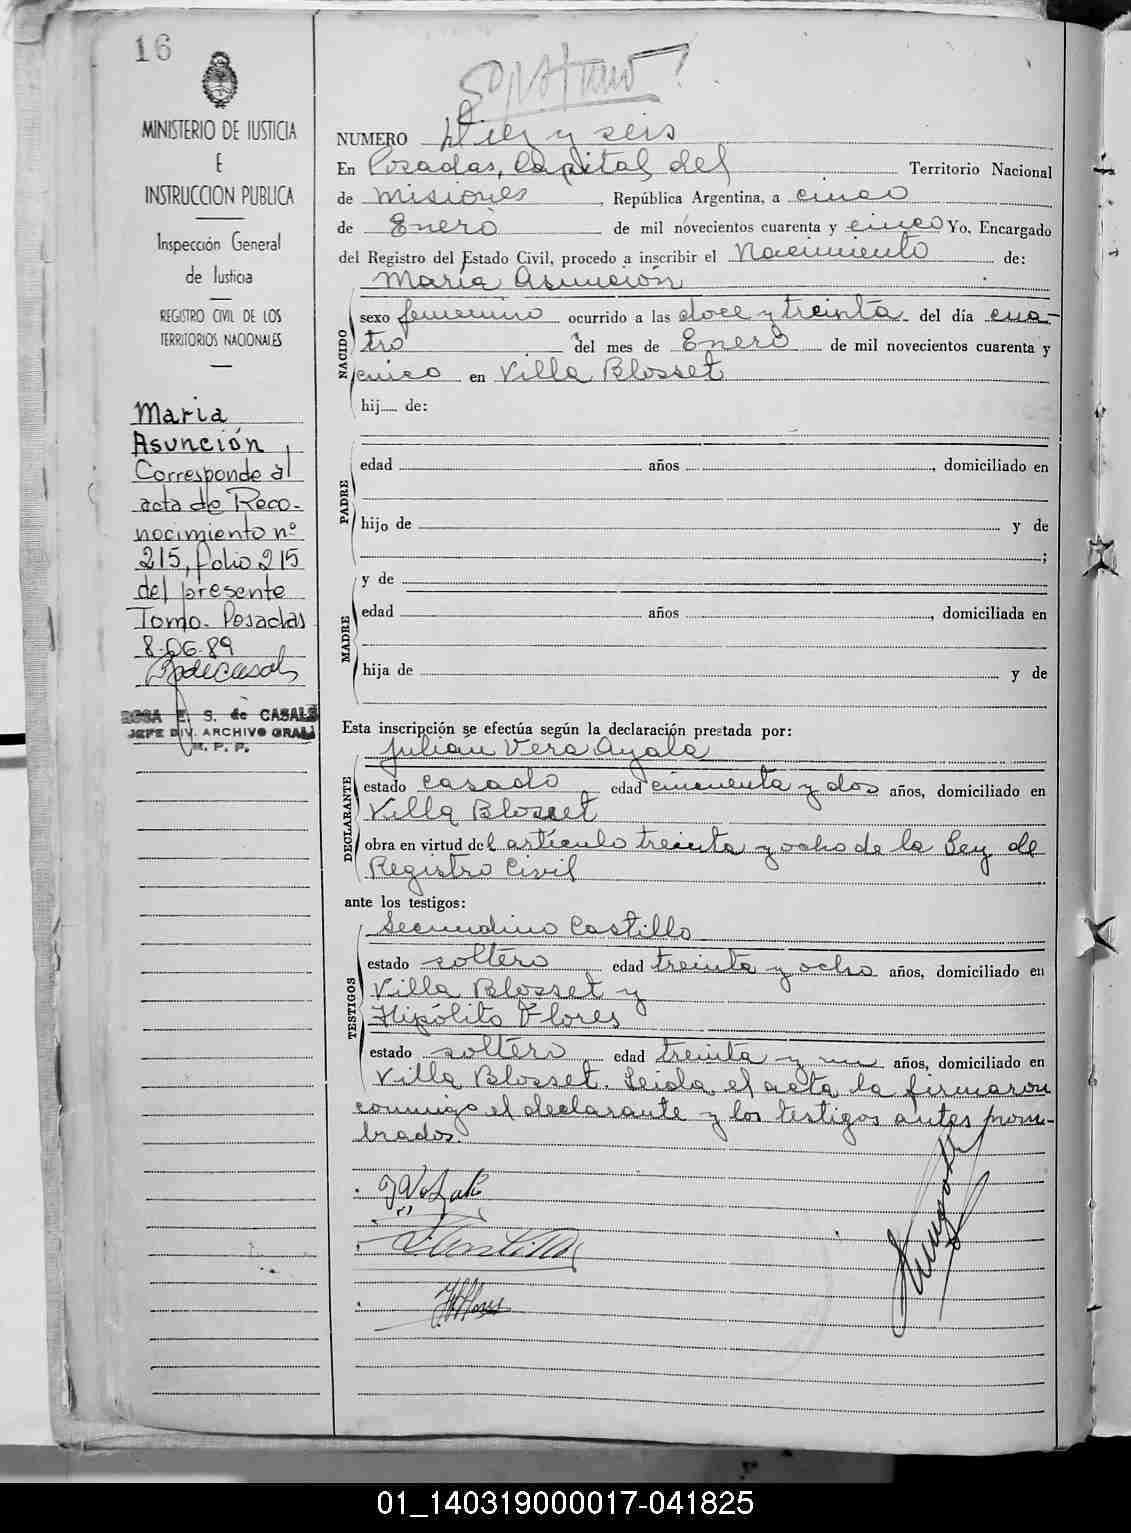 16
MINISTERIO DE JUSTICIA
E
INSTRUCCION PUBLICA
Inspección General
de Justicia
REGISTRO CIVIL DE LOS
TERRITORIOS NACIONALES
Maria
Asunción
Corresponde al
acta de Reco-
nocimiento nº
215, folio 215
del presente
Tomo. Posadas
8-06-89
ROSA E. S. de CASALS
JEFE DIV. ARCHIVO GRAL
M. P. P.
NUMERO Diez y seis
En Posadas, Capital del Territorio Nacional
de Misiones, República Argentina, a cinco
de Enero de mil novecientos cuarenta y cinco Yo, Encargado
del Registro del Estado Civil, procedo a inscribir el Nacimiento de:
María Asunción
NACIDO
sexo femenino ocurrido a las doce y treinta del día cua-
tro del mes de Enero de mil novecientos cuarenta y
cinco en Villa Blosset
hij... de:
PADRE
edad años , domiciliado en
hijo de y de
;
y de
MADRE
edad años , domiciliada en
hija de y de
Esta inscripción se efectúa según la declaración prestada por:
Julian Vera Ayala
DECLARANTE
estado casado edad cincuenta y dos años, domiciliado en
Villa Blosset
obra en virtud del artículo treinta y ocho de la Ley de
Registro Civil
ante los testigos:
Secundino Castillo
TESTIGOS
estado soltero edad treinta y ocho años, domiciliado en
Villa Blosset y
Hipólito Flores
estado soltero edad treinta y un años, domiciliado en
Villa Blosset. Leida el acta la firmaron
conmigo el declarante y los testigos antes nom-
brados.
01_140319000017-041825